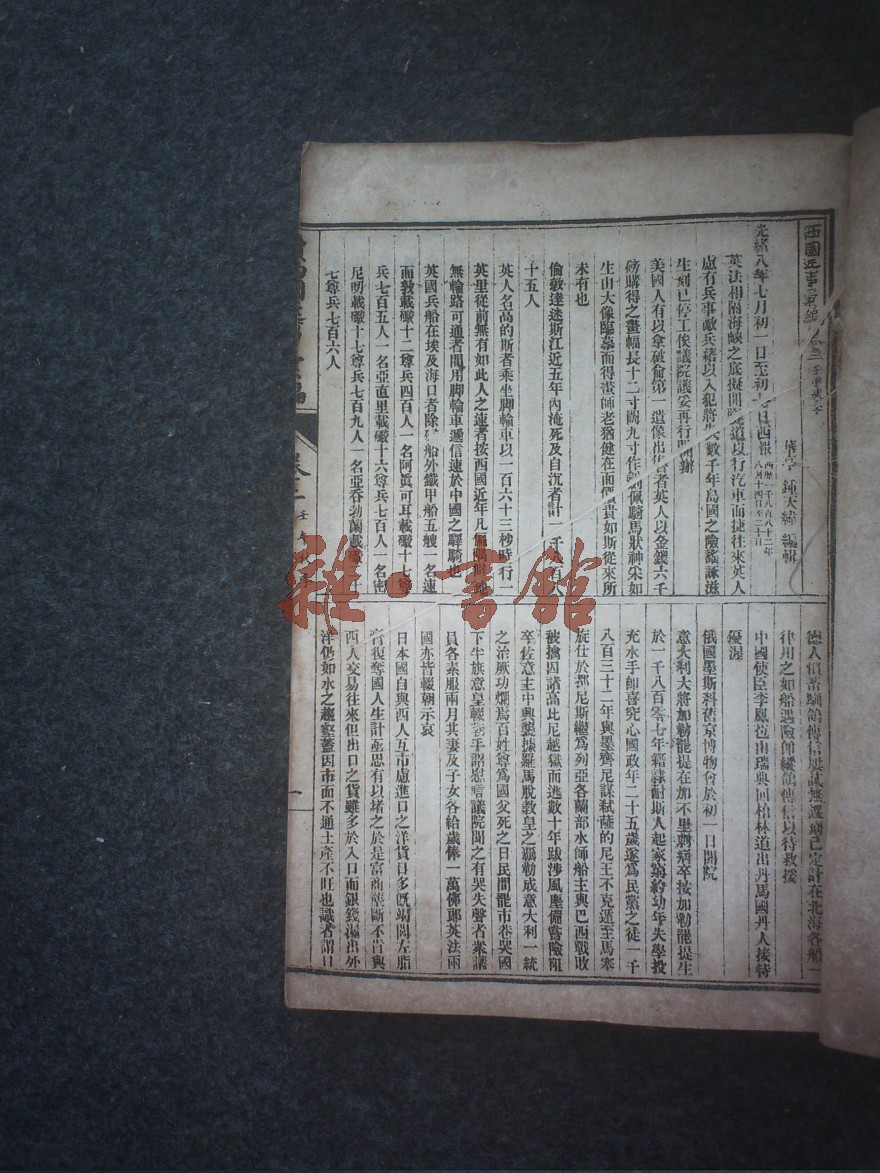 西國近事彙編 壬午
光緒八年七月初一日至初七日西報 西歷一千八百八十二年八月十四日至二十日
華亭 鍾天緯 編輯
英法相隔海峽之底擬開隧道以行汽車而捷往來英人
慮有兵事敵兵藉以入犯將失數千年島國之險謠諑滋
生刻已停工俟議院議妥再行開辦
美國人有以拿破侖第一遺像出售者英人以金錢六千
磅購得之畫幅長十二寸闊九寸作佩騎馬狀神采如
生出大像臨摹而得畫師老猶健在而價貴如斯從來所
未有也
倫敦達迷斯江近五年內淹死及自沉者計一千九百六
十五人
英人名高的斯者乘坐脚輪車以一百六十三秒時行一
英里從前無有如此人之速者按西國近年凡偏隅
無輪路可通者間用脚輪車遞信速於中國之驛騎也
英國兵船在埃及海口者除船外鐵甲船五艘一名連
而敦載礮十二尊兵四百人一名阿眞可耳載礮十七尊
兵七百五人一名亞直里載礮十六尊兵七百人一名密
尼叨載礮十七尊兵七百九人一名亞吞勃蘭載礮十
七尊兵七百六人
德人慣畜馴鴿傳信屢試無誤刻已定計在北海各船一
律用之如船遇險卽縱鴿傳信以待救援
中國使臣李鳳苞由瑞典回柏林道出丹馬國丹人接待
優渥
俄國墨斯科舊京博物會於初一日開院
意大利大將加勒罷提在加不里剌病卒按加勒罷提生
於一千八百零七年籍隸耐斯人起家寒約幼年失學投
充水手卽喜究心國政年二十五歲遂為民黨之徒一千
八百三十二年與墨齊尼謀弒薩的尼王不克遁至馬塞
旋仕於都尼斯繼為列亞各蘭部水師船主與巴西戰敗
被擒囚諸高比尼越獄而逃數十年跋涉風塵備嘗險阻
卒佐意主中興襲據羅馬脫教皇之羈勒成意大利一統
之治厥功爛焉百姓尊為國父死之日民間罷市巷哭國
下半旗意皇輟朝手詔慰唁議院聞之有哭失聲者衆議
員各素服兩月其妻及子女各給歲俸一萬佛郎英法兩
國亦皆輟朝示哀
日本國自與西人互市慮進口之洋貨日多旣竭閭左脂
膏復奪國人生計亟思有以堵之於是富商壟斷不肯與
西人交易往來但出口之貨雖多於入口而銀錢漏出外
洋仍如水之趨壑蓋因市面不通土產不旺也識者謂日
壬午
一
雜·書館